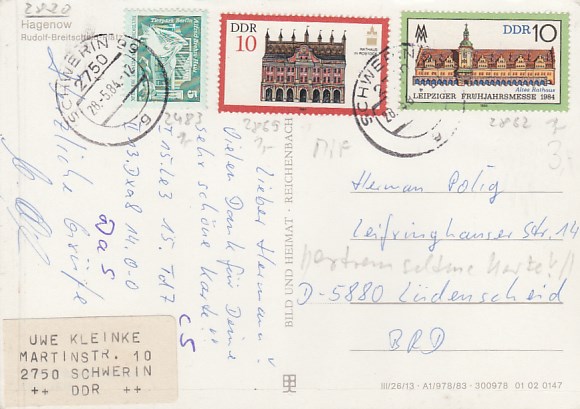 2820
Hagenow
Rudolf-Breitscheid-
SCHWERIN
2750
28.-5.84.-12
Tierpark Berlin
5
DDR
10
RATHAUS
IN ROSTOCK
DDR 10
Altes Rathaus
LEIPZIGER FRÜHJAHRSMESSE 1984
SCHWERIN
2483
2865
2862
1,-
MIF
3,-
Lieber Hermann
Vielen Dank für Deine
sehr schöne Karte!!
15. Le3 15. Td7
13. Dxa8 14. 0-0
Herzliche Grüße
Uwe
BILD UND HEIMAT · REICHENBACH
Herman Polig
Leifringhauser Str. 14
!! extrem seltene Karte !!
D-5880 Lüdenscheid
BRD
UWE KLEINKE
MARTINSTR. 10
2750 SCHWERIN
++ DDR ++
III/26/13 · A1/978/83 · 300978 01 02 0147